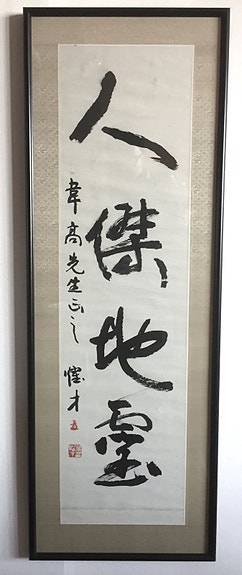 人傑地靈
韋高先生正之
才